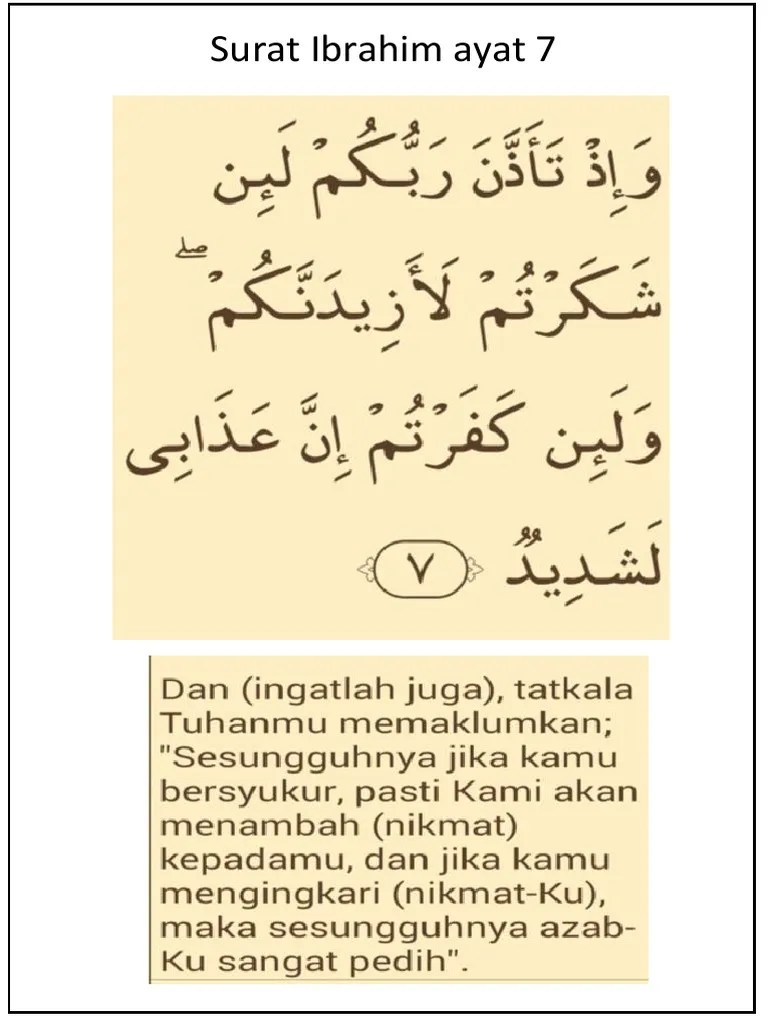 Surat Ibrahim ayat 7
وَإِذْ تَأَذَّنَ رَبُّكُمْ لَئِن
شَكَرْتُمْ لَأَزِيدَنَّكُمْ ۖ
وَلَئِن كَفَرْتُمْ إِنَّ عَذَابِى
لَشَدِيدٌ ٧
Dan (ingatlah juga), tatkala
Tuhanmu memaklumkan;
"Sesungguhnya jika kamu
bersyukur, pasti Kami akan
menambah (nikmat)
kepadamu, dan jika kamu
mengingkari (nikmat-Ku),
maka sesungguhnya azab-
Ku sangat pedih".